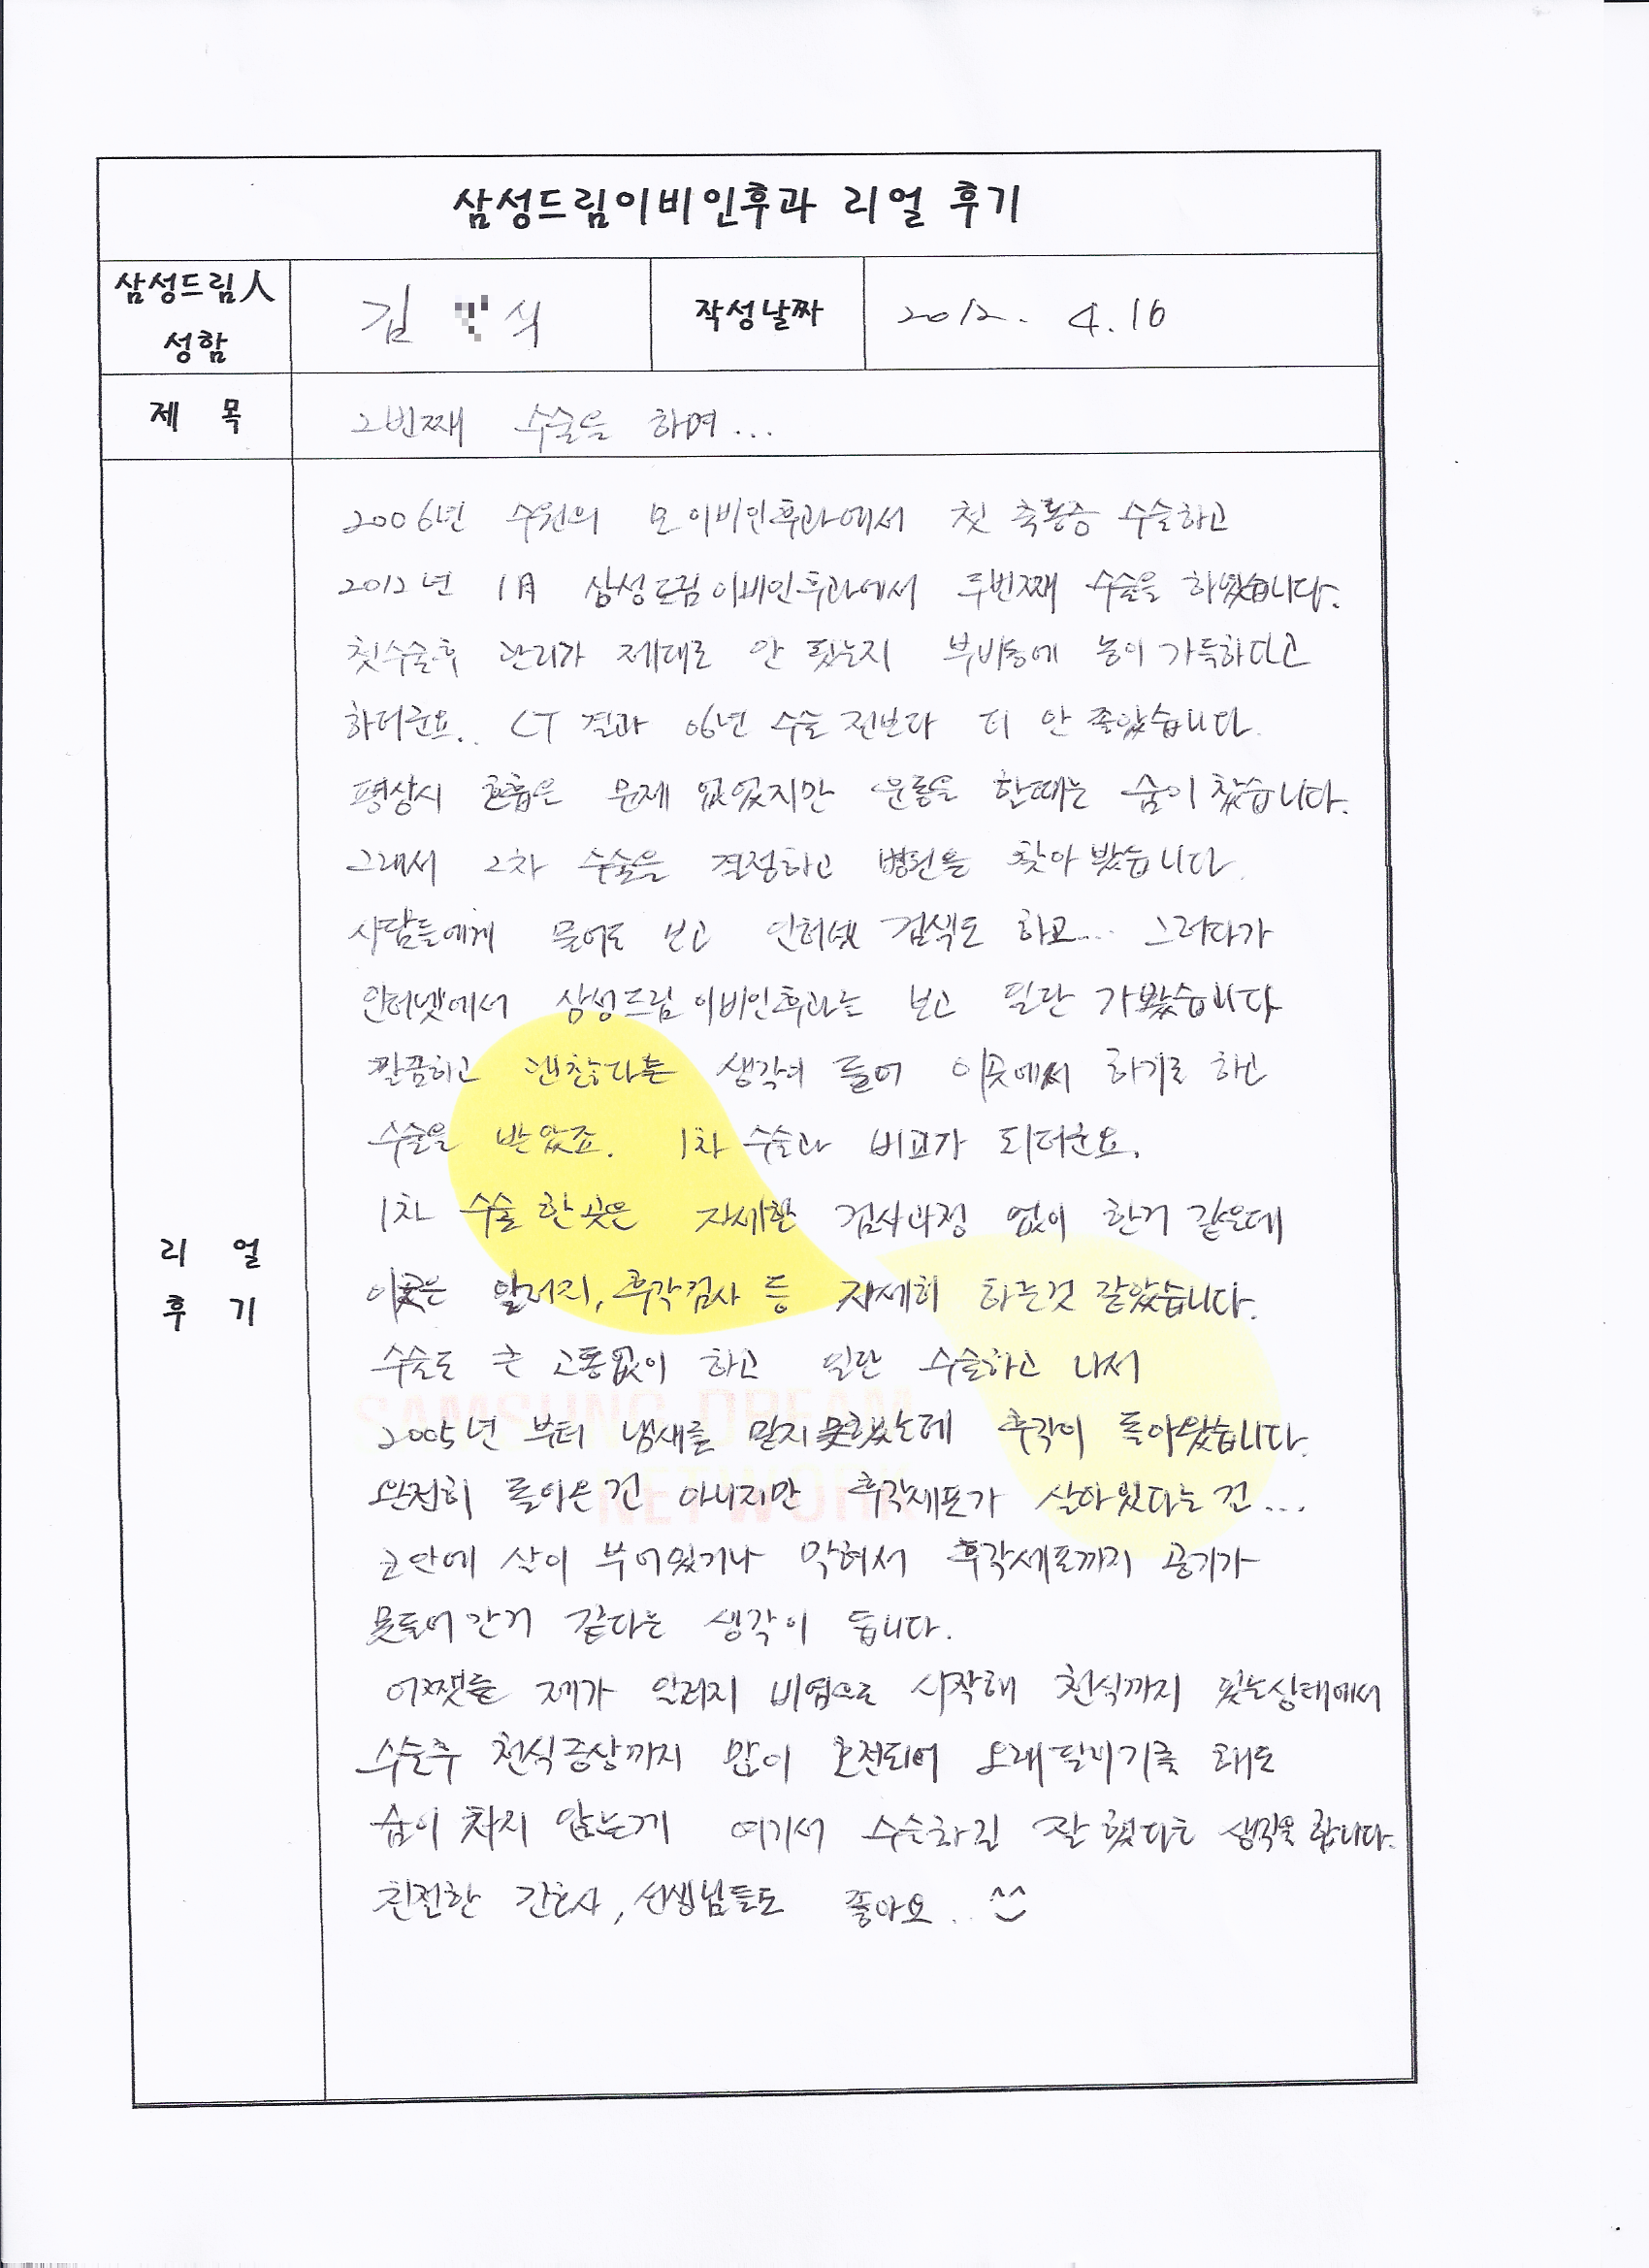 삼성드림이비인후과 리얼 후기
삼성드림人
성함
김 식
작성날짜
2012. 4. 16
제 목
2번째 수술을 하며...
리 얼
후 기
2006년 수원의 모 이비인후과에서 첫 축농증 수술하고
2012년 1月 삼성드림이비인후과에서 두번째 수술을 하였습니다.
첫수술후 관리가 제대로 안 됬는지 부비동에 농이 가득하다고
하더군요.. CT 결과 06년 수술 전보다 더 안 좋았습니다.
평상시 호흡은 문제 없었지만 운동을 할때는 숨이 찼습니다.
그래서 2차 수술을 결정하고 병원을 찾아 봤습니다.
사람들에게 물어도 보고 인터넷 검색도 하고... 그러다가
인터넷에서 삼성드림이비인후과는 보고 일단 가봤습니다
깔끔하고 괜찮다는 생각이 들어 이곳에서 하기로 하고
수술을 받았죠. 1차 수술과 비교가 되더군요.
1차 수술 한 곳은 자세한 검사과정 없이 한거 같은데
이곳은 알러지, 후각검사 등 자세히 하는것 같았습니다.
수술도 큰 고통없이 하고 일단 수술하고 나서
2005년 부터 냄새를 맡지못했는데 후각이 돌아왔습니다.
완전히 돌아온건 아니지만 후각세포가 살아있다는 건...
코안에 살이 부어있거나 막혀서 후각세포까지 공기가
못들어간거 같다는 생각이 듭니다.
어쨋든 제가 알러지 비염으로 시작해 천식까지 됬는상태에서
수술후 천식증상까지 많이 호전되어 오래달리기를 해도
숨이 차지 않는게 여기서 수술하길 잘 했다는 생각을 합니다.
친절한 간호사, 선생님들도 좋아요.. ^^
SAMSUNG DREAM
NETWORK